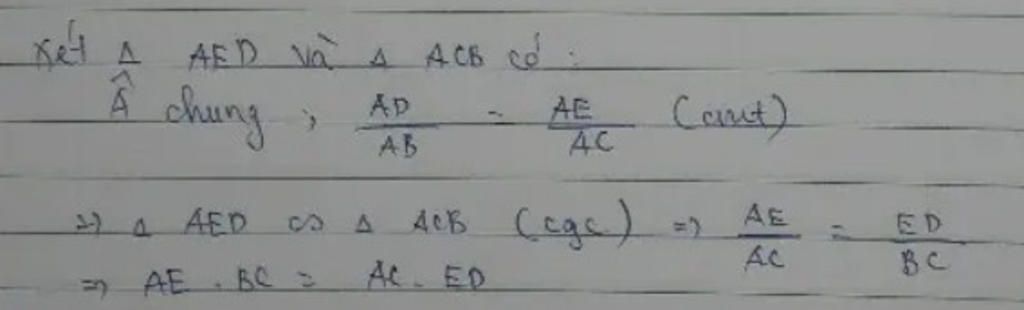 Xét Δ AED và Δ ACB có :
Â chung ; AD/AB = AE/AC (cmt)
=> Δ AED ∽ Δ ACB (cgc) => AE/AC = ED/BC
=> AE . BC = AC . ED